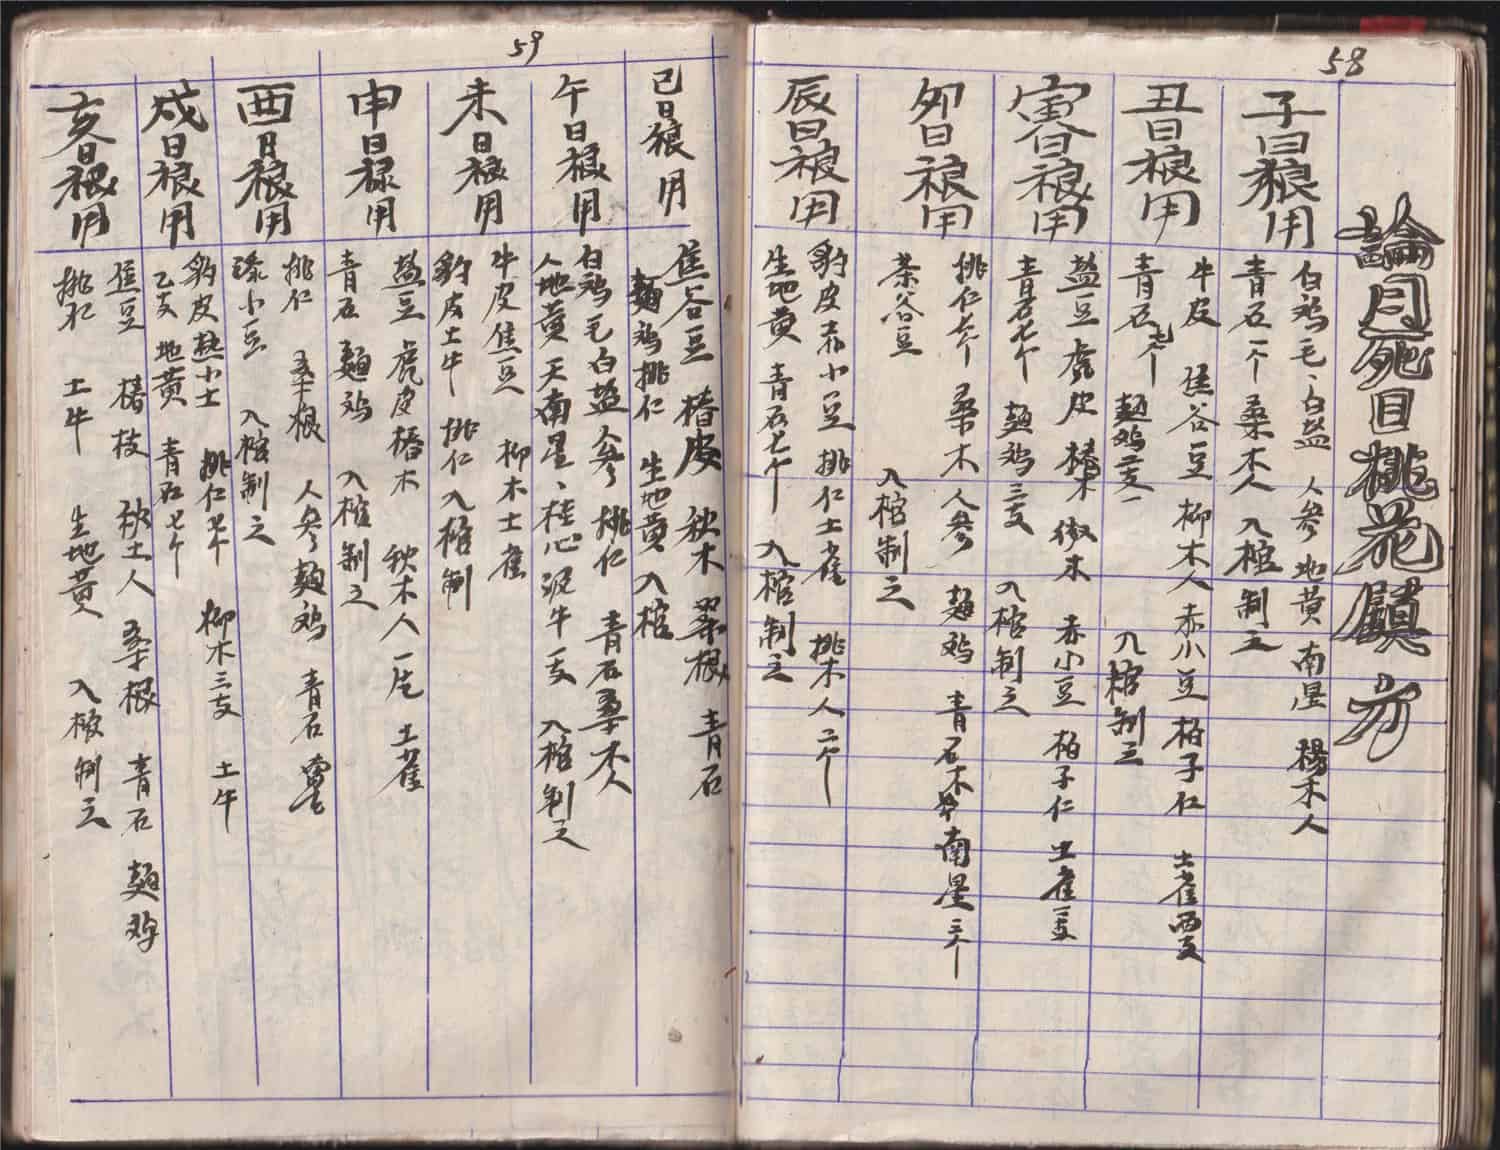 58
論日死日桃花鎮方
子日殃用
白鸡毛、白盐 人參 地黄 南星 楊木人
青石一个 桑木人 入棺制之
丑日殃用
牛皮 焦谷豆 柳木人 赤小豆 柏子仁 土雀两支
青石七个 麺鸡一支 入棺制之
寅日殃用
盐豆 虎皮 椿木 赤小豆 柏子仁 土雀一支
青石七个 麺鸡三支 入棺制之
卯日殃用
桃仁七个 桑木人參 麺鸡 青石 南星三个
茶谷豆 入棺制之
辰日殃用
豹皮 赤小豆 桃仁 土雀 桃木人二个
生地黄 青石七个 入棺制之
59
巳日殃用
焦谷豆 椿皮 秋木 桑根 青石
麺鸡 桃仁 生地黄 入棺
午日殃用
白鸡毛 白盐 人參 桃仁 青石 桑木人
人地黄 天南星、桂心 泥牛一支 入棺制之
未日殃用
牛皮 焦豆 柳木 土雀
豹皮 土牛 桃仁 入棺制
申日殃用
盐豆 虎皮 椿木 秋木人一个 土雀
青石 麺鸡 入棺制之
酉日殃用
桃仁 桑根 人參 麺鸡 青石
小豆 入棺制之
戍日殃用
豹皮 小土 桃仁七个 柳木三支 土牛
乙支 地黄 青石七个
亥日殃用
焦豆 椿枝 秋土人 桑根 青石 麺鸡
桃仁 土牛 生地黄 入棺制之